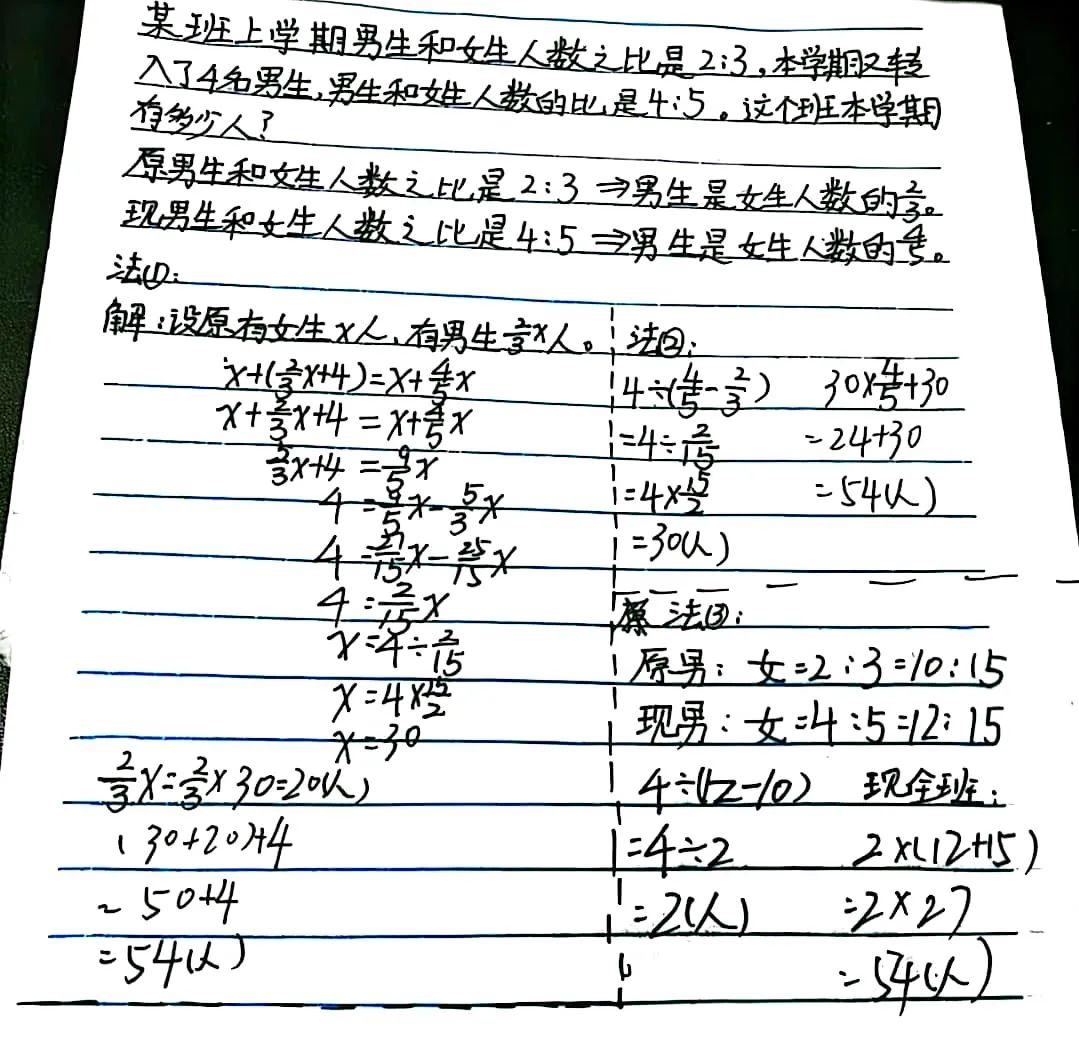 某班上学期男生和女生人数之比是2:3,本学期又转
入了4名男生,男生和女生人数的比是4:5。这个班本学期
有多少人?
原男生和女生人数之比是2:3⇒男生是女生人数的2/3。
现男生和女生人数之比是4:5⇒男生是女生人数的4/5。
法①:
解:设原有女生x人,有男生2/3x人。
x+(2/3x+4)=x+4/5x
x+2/3x+4=x+4/5x
5/3x+4=9/5x
4=9/5x-5/3x
4=27/15x-25/15x
4=2/15x
x=4÷2/15
x=4×15/2
x=30
2/3x=2/3×30=20(人)
(30+20)+4
=50+4
=54(人)
法②:
4÷(4/5-2/3)
=4÷2/15
=4×15/2
=30(人)
30×4/5+30
=24+30
=54(人)
法③:
原男:女=2:3=10:15
现男:女=4:5=12:15
4÷(12-10)
=4÷2
=2(人)
现全班:
2×(12+15)
=2×27
=54(人)